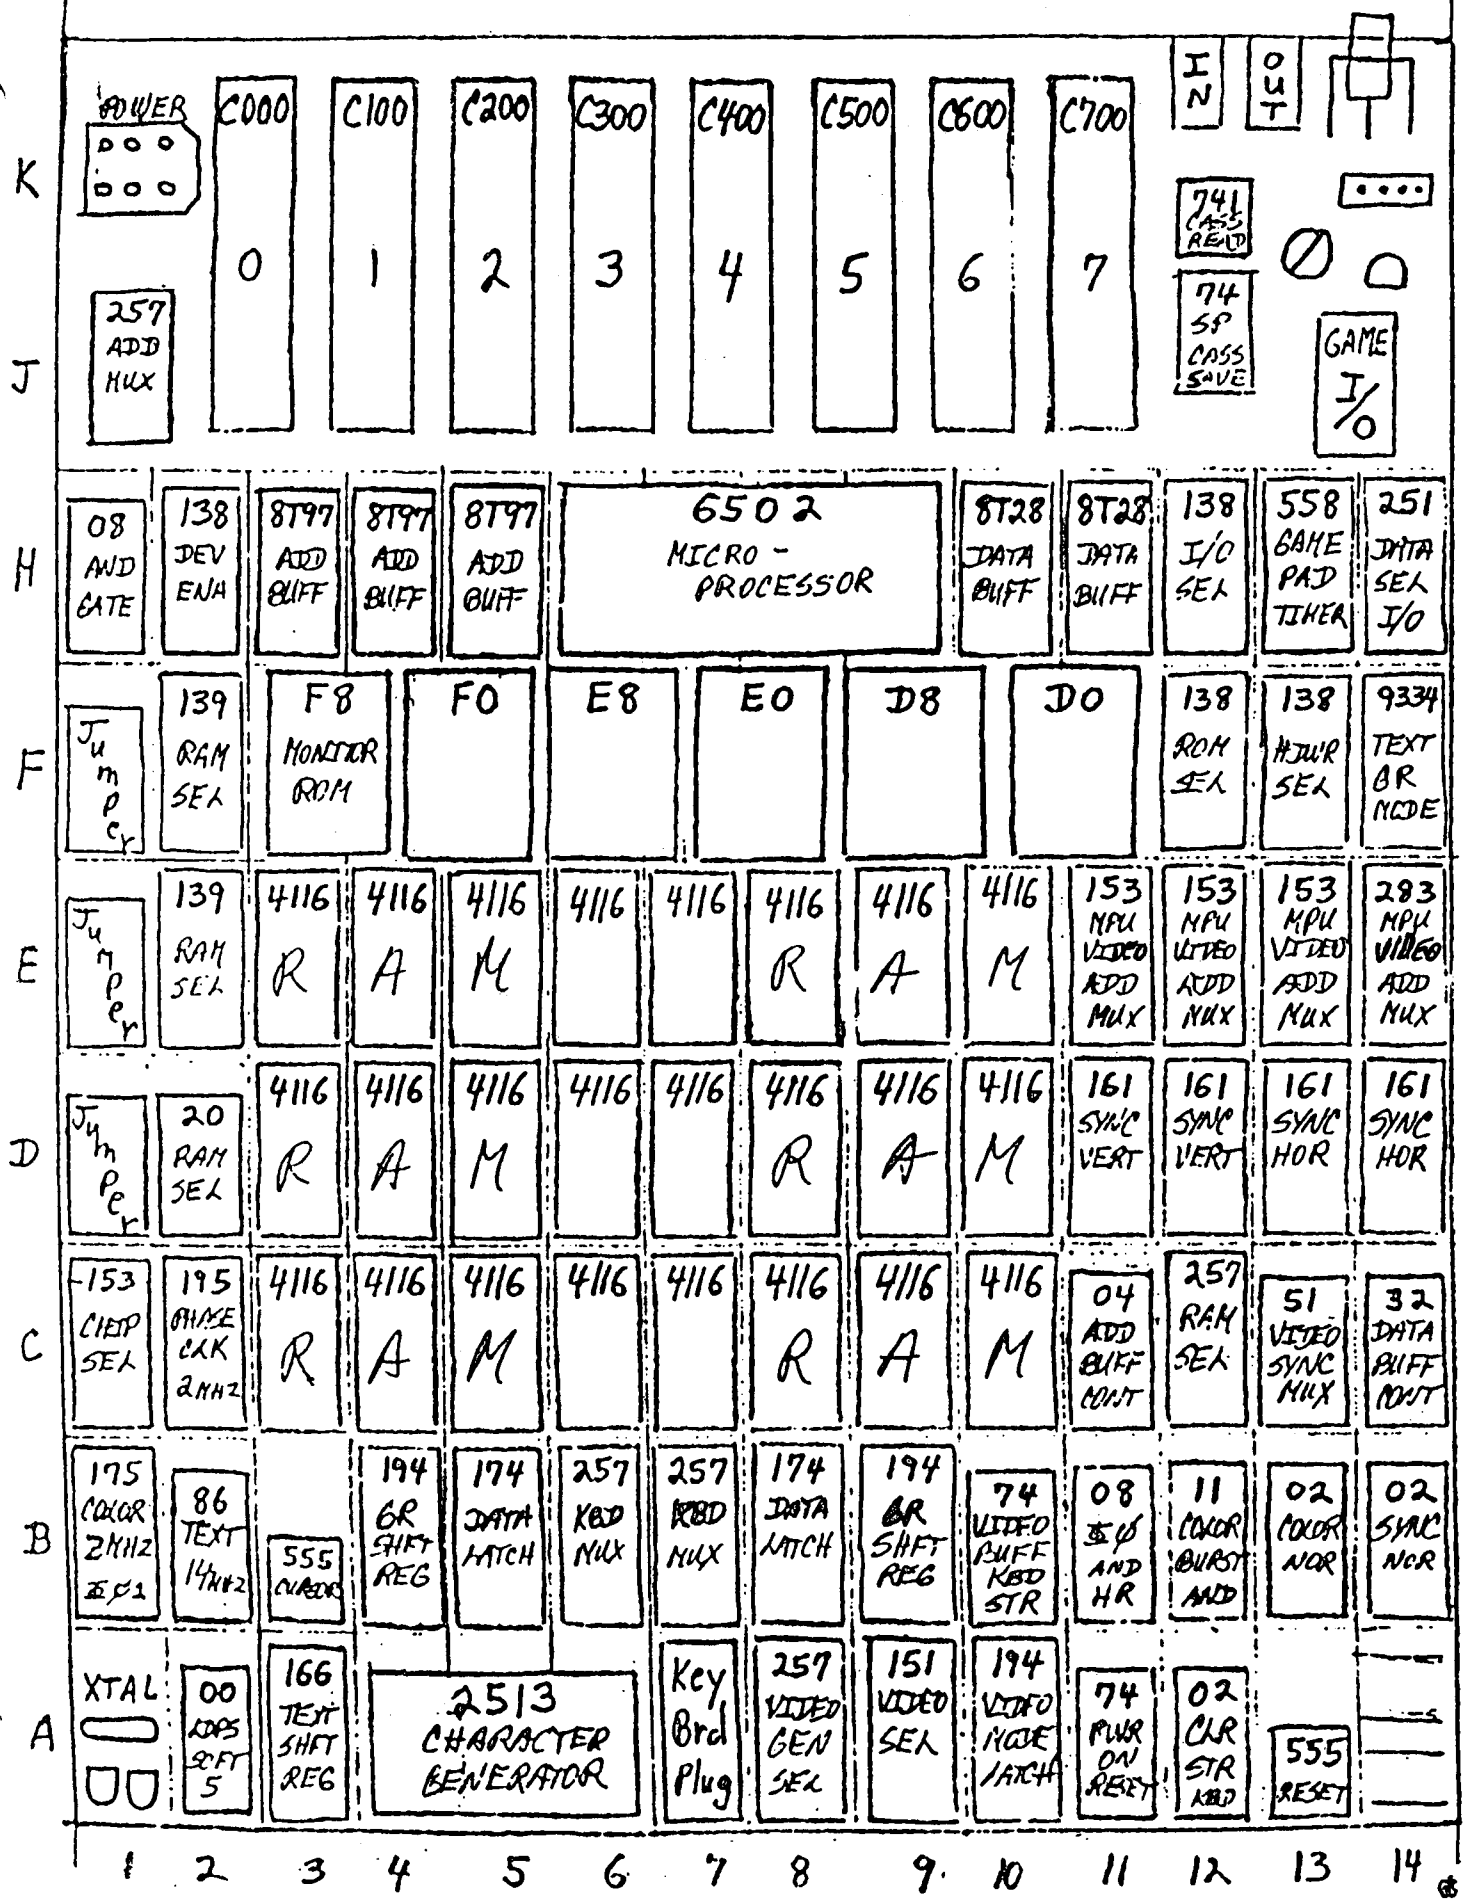 IN OUT
POWER C000 C100 C200 C300 C400 C500 C600 C700
K
741
CASS
READ
0 1 2 3 4 5 6 7
257
ADD
MUX
74
SP
CASS
SAVE
GAME
I/O
J
H
08
AND
GATE
138
DEV
ENA
8T97
ADD
BUFF
8T97
ADD
BUFF
8T97
ADD
BUFF
6502
MICRO-
PROCESSOR
8T28
DATA
BUFF
8T28
DATA
BUFF
138
I/O
SEL
558
GAME
PAD
TIMER
251
DATA
SEL
I/O
F
Jumper
139
RAM
SEL
F8
MONITOR
ROM
F0
E8
E0
D8
D0
138
ROM
SEL
138
SEL
9334
TEXT
GR
MODE
E
Jumper
139
RAM
SEL
4116 4116 4116 4116 4116 4116 4116 4116
R A M R A M
153
MPU
VIDEO
ADD
MUX
153
MPU
VIDEO
ADD
MUX
153
MPU
VIDEO
ADD
MUX
283
MPU
VIDEO
ADD
MUX
D
Jumper
20
RAM
SEL
4116 4116 4116 4116 4116 4116 4116 4116
R A M R A M
161
SYNC
VERT
161
SYNC
VERT
161
SYNC
HOR
161
SYNC
HOR
C
153
CHIP
SEL
195
PHASE
CLK
2MHZ
4116 4116 4116 4116 4116 4116 4116 4116
R A M R A M
04
ADD
BUFF
CONT
257
RAM
SEL
51
VIDEO
SYNC
MUX
32
DATA
BUFF
CONT
B
175
COLOR
2MHZ
86
TEXT
14MHZ
555
CURSOR
194
GR
SHFT
REG
174
DATA
LATCH
257
KBD
MUX
257
KBD
MUX
174
DATA
LATCH
194
GR
SHFT
REG
74
VIDEO
BUFF
KBD
STR
08
AND
HR
11
COLOR
BURST
AND
02
COLOR
NOR
02
SYNC
NOR
A
XTAL
00
SOFT
5
166
TEXT
SHFT
REG
2513
CHARACTER
GENERATOR
Key
Brd
Plug
257
VIDEO
GEN
SEL
151
VIDEO
SEL
194
VIDEO
MODE
LATCH
74
PWR
ON
RESET
02
CLR
STR
KBD
555
RESET
1 2 3 4 5 6 7 8 9 10 11 12 13 14